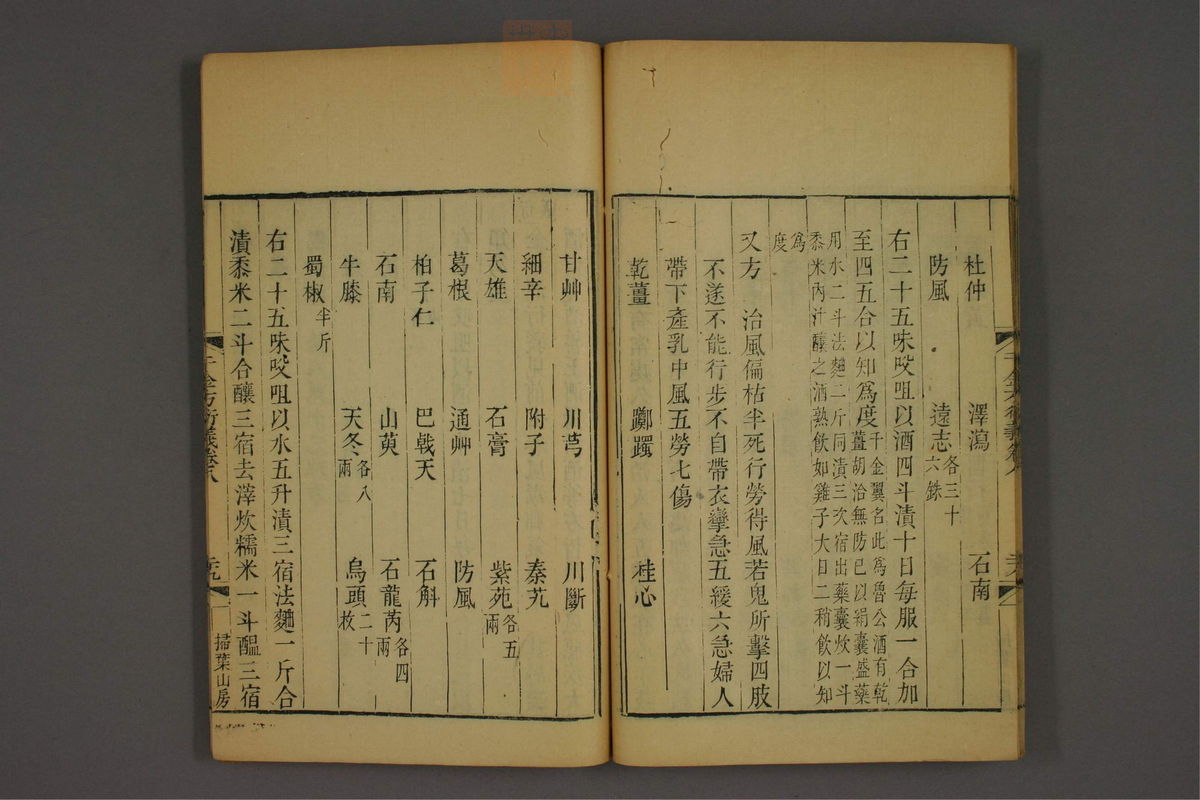 杜仲 澤瀉 石南
防風 遠志各三十六銖
右二十五味㕮咀以酒四斗漬十日每服一合加
至四五合以知爲度千金翼名此爲魯公酒有乾薑胡洽無防巳以絹囊盛藥
用水二斗法麯二斤同漬三次宿出藥囊炊一斗黍米內汁釀之酒熟飲如雞子大日二稍飲以知
爲度
又方 治風偏枯半死行勞得風若鬼所擊四肢
不遂不能行步不自帶衣攣急五緩六急婦人
帶下產乳中風五勞七傷
乾薑 躑躅 桂心
甘艸 川芎 川斷
細辛 附子 秦艽
天雄 石膏 紫苑各五兩
葛根 通艸 防風
柏子仁 巴戟天 石斛
石南 山萸 石龍芮各四兩
牛膝 天冬各八兩 烏頭二十枚
蜀椒半斤
右二十五味㕮咀以水五升漬三宿法麯一斤合
漬黍米二斗合釀三宿去滓炊糯米一斗醞三宿
千金方衍義卷八 元 掃葉山房